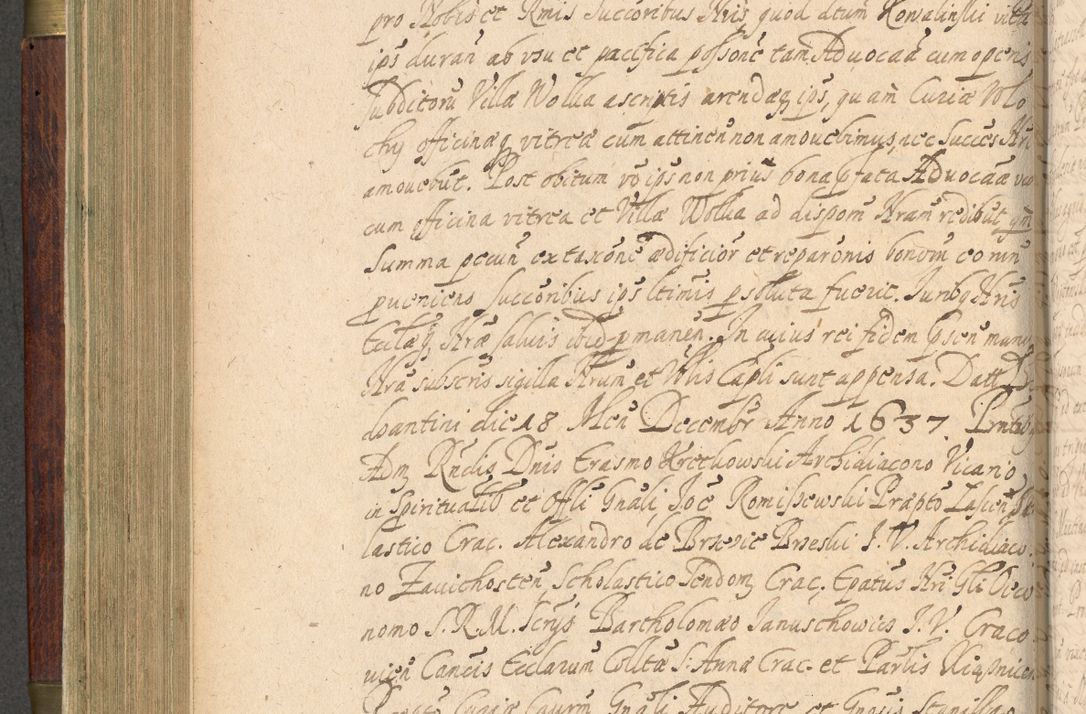 pro Nobis et Rmis Succoribus Nris, quod dtum Kowalinski vita
ips durañ ab vsu et pacifica possone tam Aduocaa cum operis
Subditorũ Villæ Wollia ascriptis arendaq ips, quam Curiæ Wlo
chij officinæq vitreæ cum attinen non amouebimus, nec Succes Nri
amouebut. Post obitum vo ips non prius bona pfata Aduocaa
cum officina vitrea et Villæ Wollia ad dispom Nram redibut qm
Summa pecuñ ex taxone ædificior et reparonis bonorum eorum
pueniens Succoribus ips ltimis psoluta fuerit. Juribq Nris
Ecclæq Nræ saluis ibid pmanen. In cuius rei fidem psen manu
Nra subscris sigilla Nrum et Wlis Capli sunt appensa. Datt
doantini die 18 Men Decembr Anno 1637. Prntibq
Adm Rndis Dnis Erasmo Kretkowski Archidiacono Vicario
in Spiritualib et Offli Gnali, Joe Romiszewski Præpto Lascen
lastico Crac. Alexandro de Brzezie Brzeski J. V. Archidiaco
no Zauichosten, Scholastico Sendom, Crac. Epatus Nri Gli Oeco
nomo S. R. M. Scrijs Bartholomæo Januschowics J. V. Craco
uien Cancis Ecclarum Colltæ S. Annæ Crac. et Parlis
Curiæ Caurm Gnali Auditore et Gnosis Stanislao